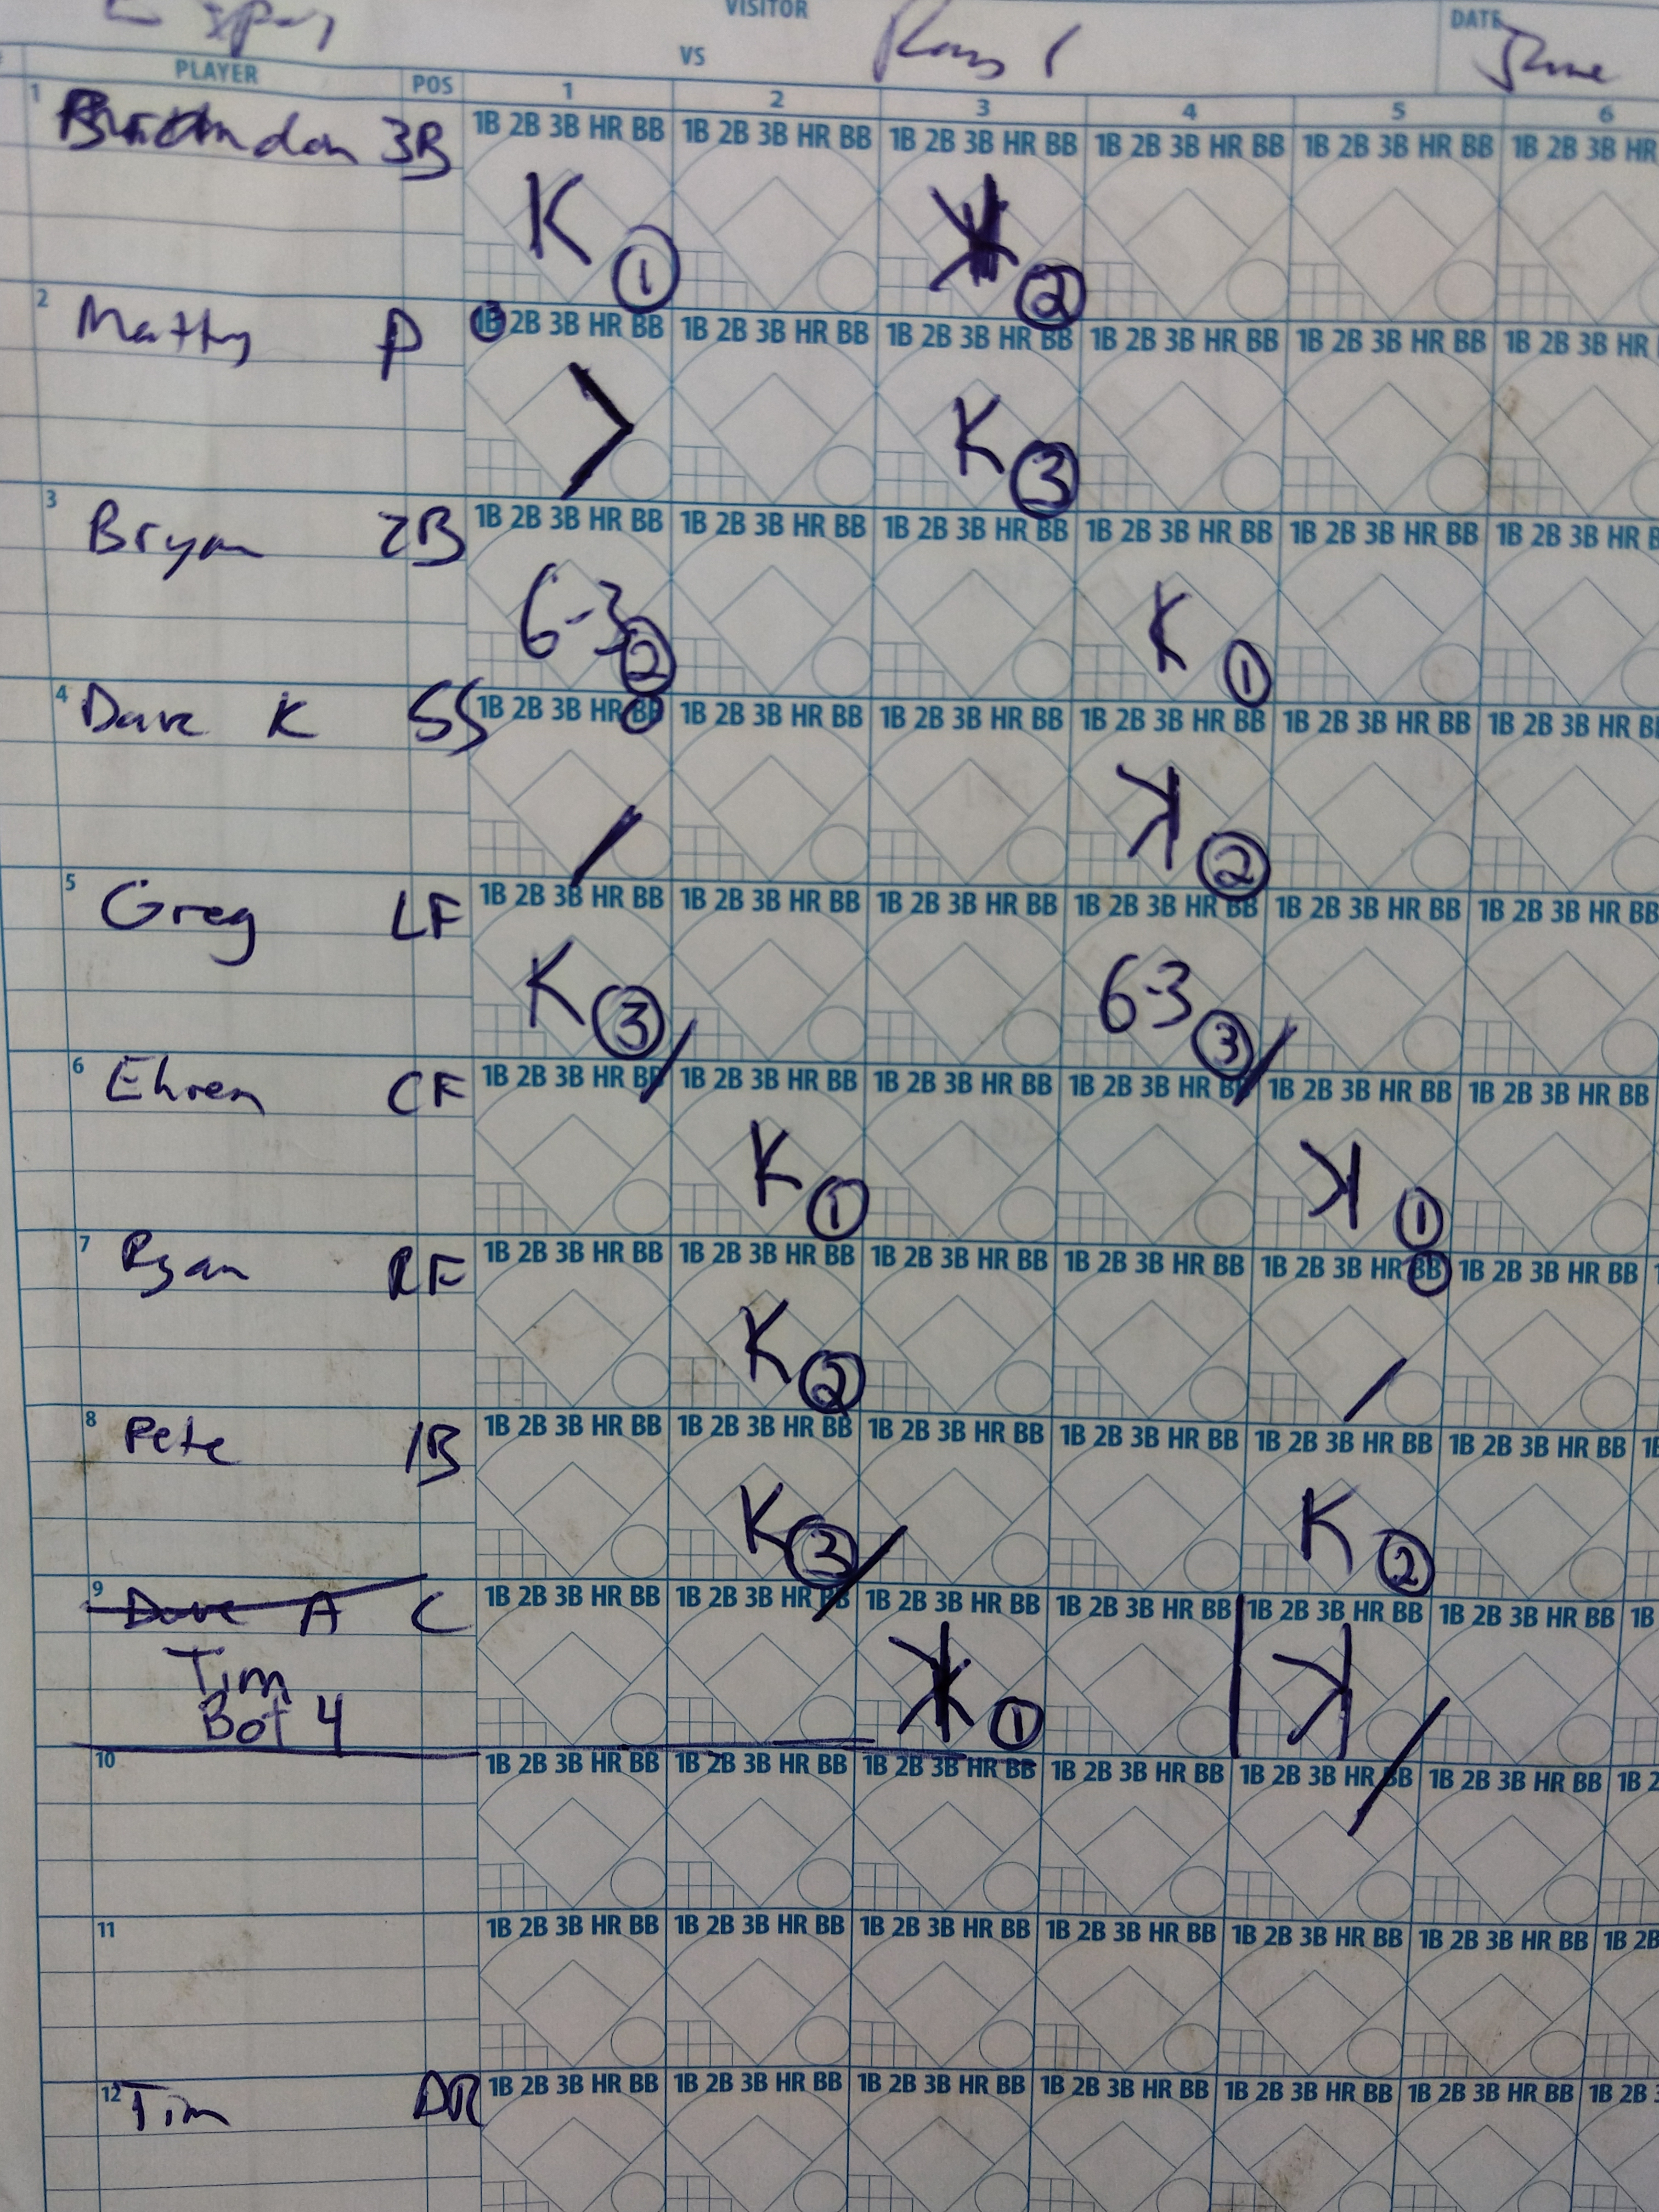 VISITOR
DATE
VS
June
PLAYER POS 1 2 3 4 5 6
1 Brandon 3B 1B 2B 3B HR BB 1B 2B 3B HR BB 1B 2B 3B HR BB 1B 2B 3B HR BB 1B 2B 3B HR BB 1B 2B 3B HR
K 1 ꓘ 2
2 Matty P 1B 2B 3B HR BB 1B 2B 3B HR BB 1B 2B 3B HR BB 1B 2B 3B HR BB 1B 2B 3B HR BB 1B 2B 3B HR
K 3
3 Bryan 2B 1B 2B 3B HR BB 1B 2B 3B HR BB 1B 2B 3B HR BB 1B 2B 3B HR BB 1B 2B 3B HR BB 1B 2B 3B HR B
6-3 2 K 1
4 Dave K SS 1B 2B 3B HR BB 1B 2B 3B HR BB 1B 2B 3B HR BB 1B 2B 3B HR BB 1B 2B 3B HR BB 1B 2B 3B HR BB
ꓘ 2
5 Greg LF 1B 2B 3B HR BB 1B 2B 3B HR BB 1B 2B 3B HR BB 1B 2B 3B HR BB 1B 2B 3B HR BB 1B 2B 3B HR BB
K 3 6-3 3
6 Ehren CF 1B 2B 3B HR BB 1B 2B 3B HR BB 1B 2B 3B HR BB 1B 2B 3B HR BB 1B 2B 3B HR BB 1B 2B 3B HR BB
K 1 ꓘ 1
7 Ryan RF 1B 2B 3B HR BB 1B 2B 3B HR BB 1B 2B 3B HR BB 1B 2B 3B HR BB 1B 2B 3B HR BB 1B 2B 3B HR BB
K 2
8 Pete 1B 1B 2B 3B HR BB 1B 2B 3B HR BB 1B 2B 3B HR BB 1B 2B 3B HR BB 1B 2B 3B HR BB 1B 2B 3B HR BB 1B
K 3 K 2
9 Dave A C 1B 2B 3B HR BB 1B 2B 3B HR BB 1B 2B 3B HR BB 1B 2B 3B HR BB 1B 2B 3B HR BB 1B 2B 3B HR BB 1B
Tim ꓘ 1 ꓘ
Bot 4
10 1B 2B 3B HR BB 1B 2B 3B HR BB 1B 2B 3B HR BB 1B 2B 3B HR BB 1B 2B 3B HR BB 1B 2B 3B HR BB 1B 2
11 1B 2B 3B HR BB 1B 2B 3B HR BB 1B 2B 3B HR BB 1B 2B 3B HR BB 1B 2B 3B HR BB 1B 2B 3B HR BB 1B 2B
12 Tim DR 1B 2B 3B HR BB 1B 2B 3B HR BB 1B 2B 3B HR BB 1B 2B 3B HR BB 1B 2B 3B HR BB 1B 2B 3B HR BB 1B 2B 3